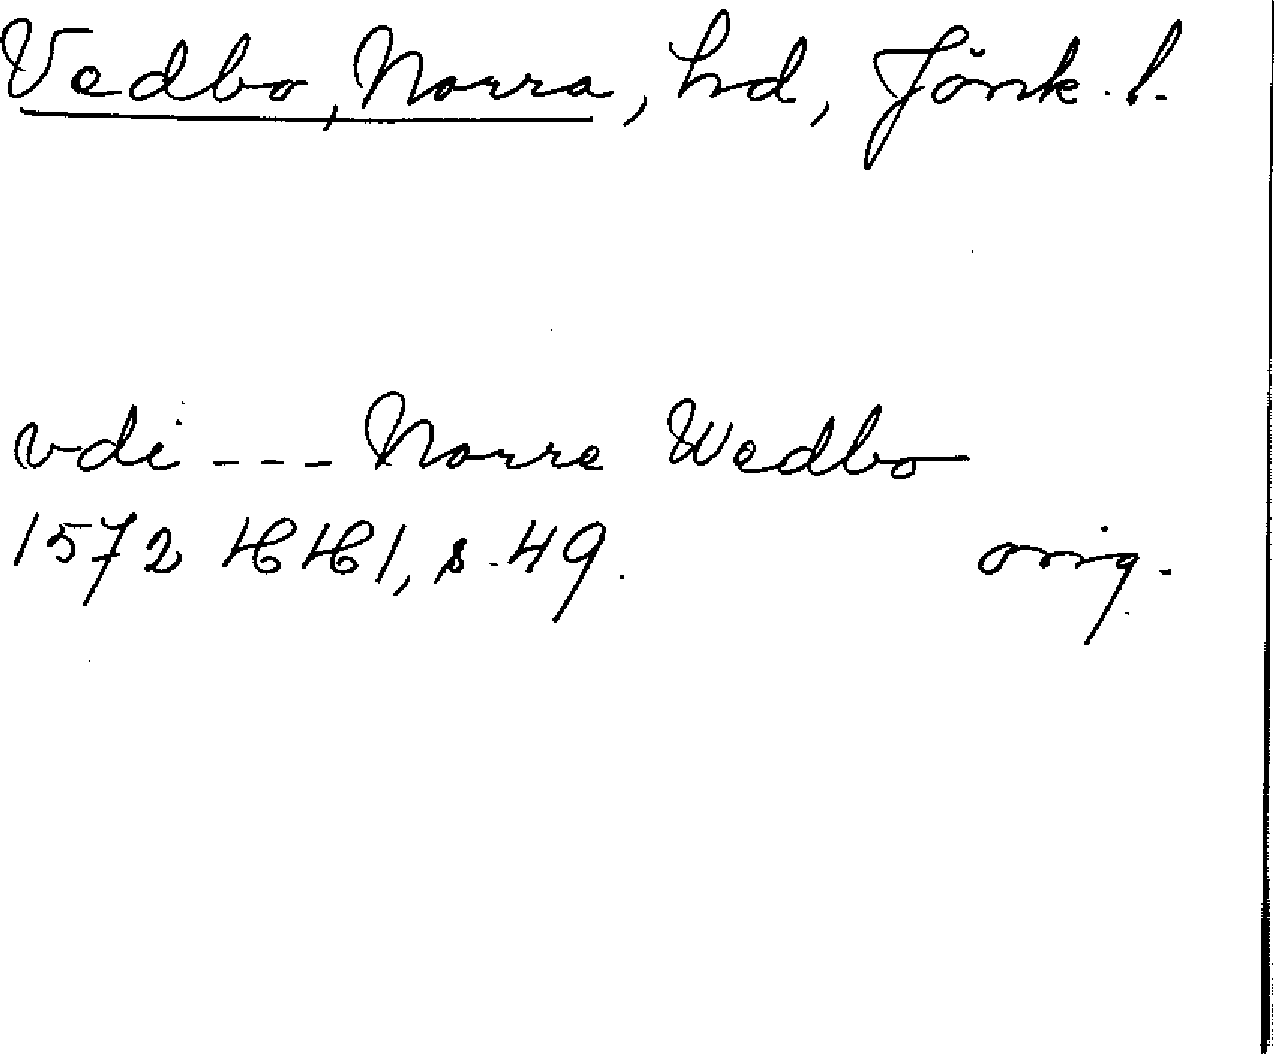 Vedbo, Norra, hd, Jönk. l.
vdi --- Norre Wedbo
1572 HH 1, s. 49. orig.